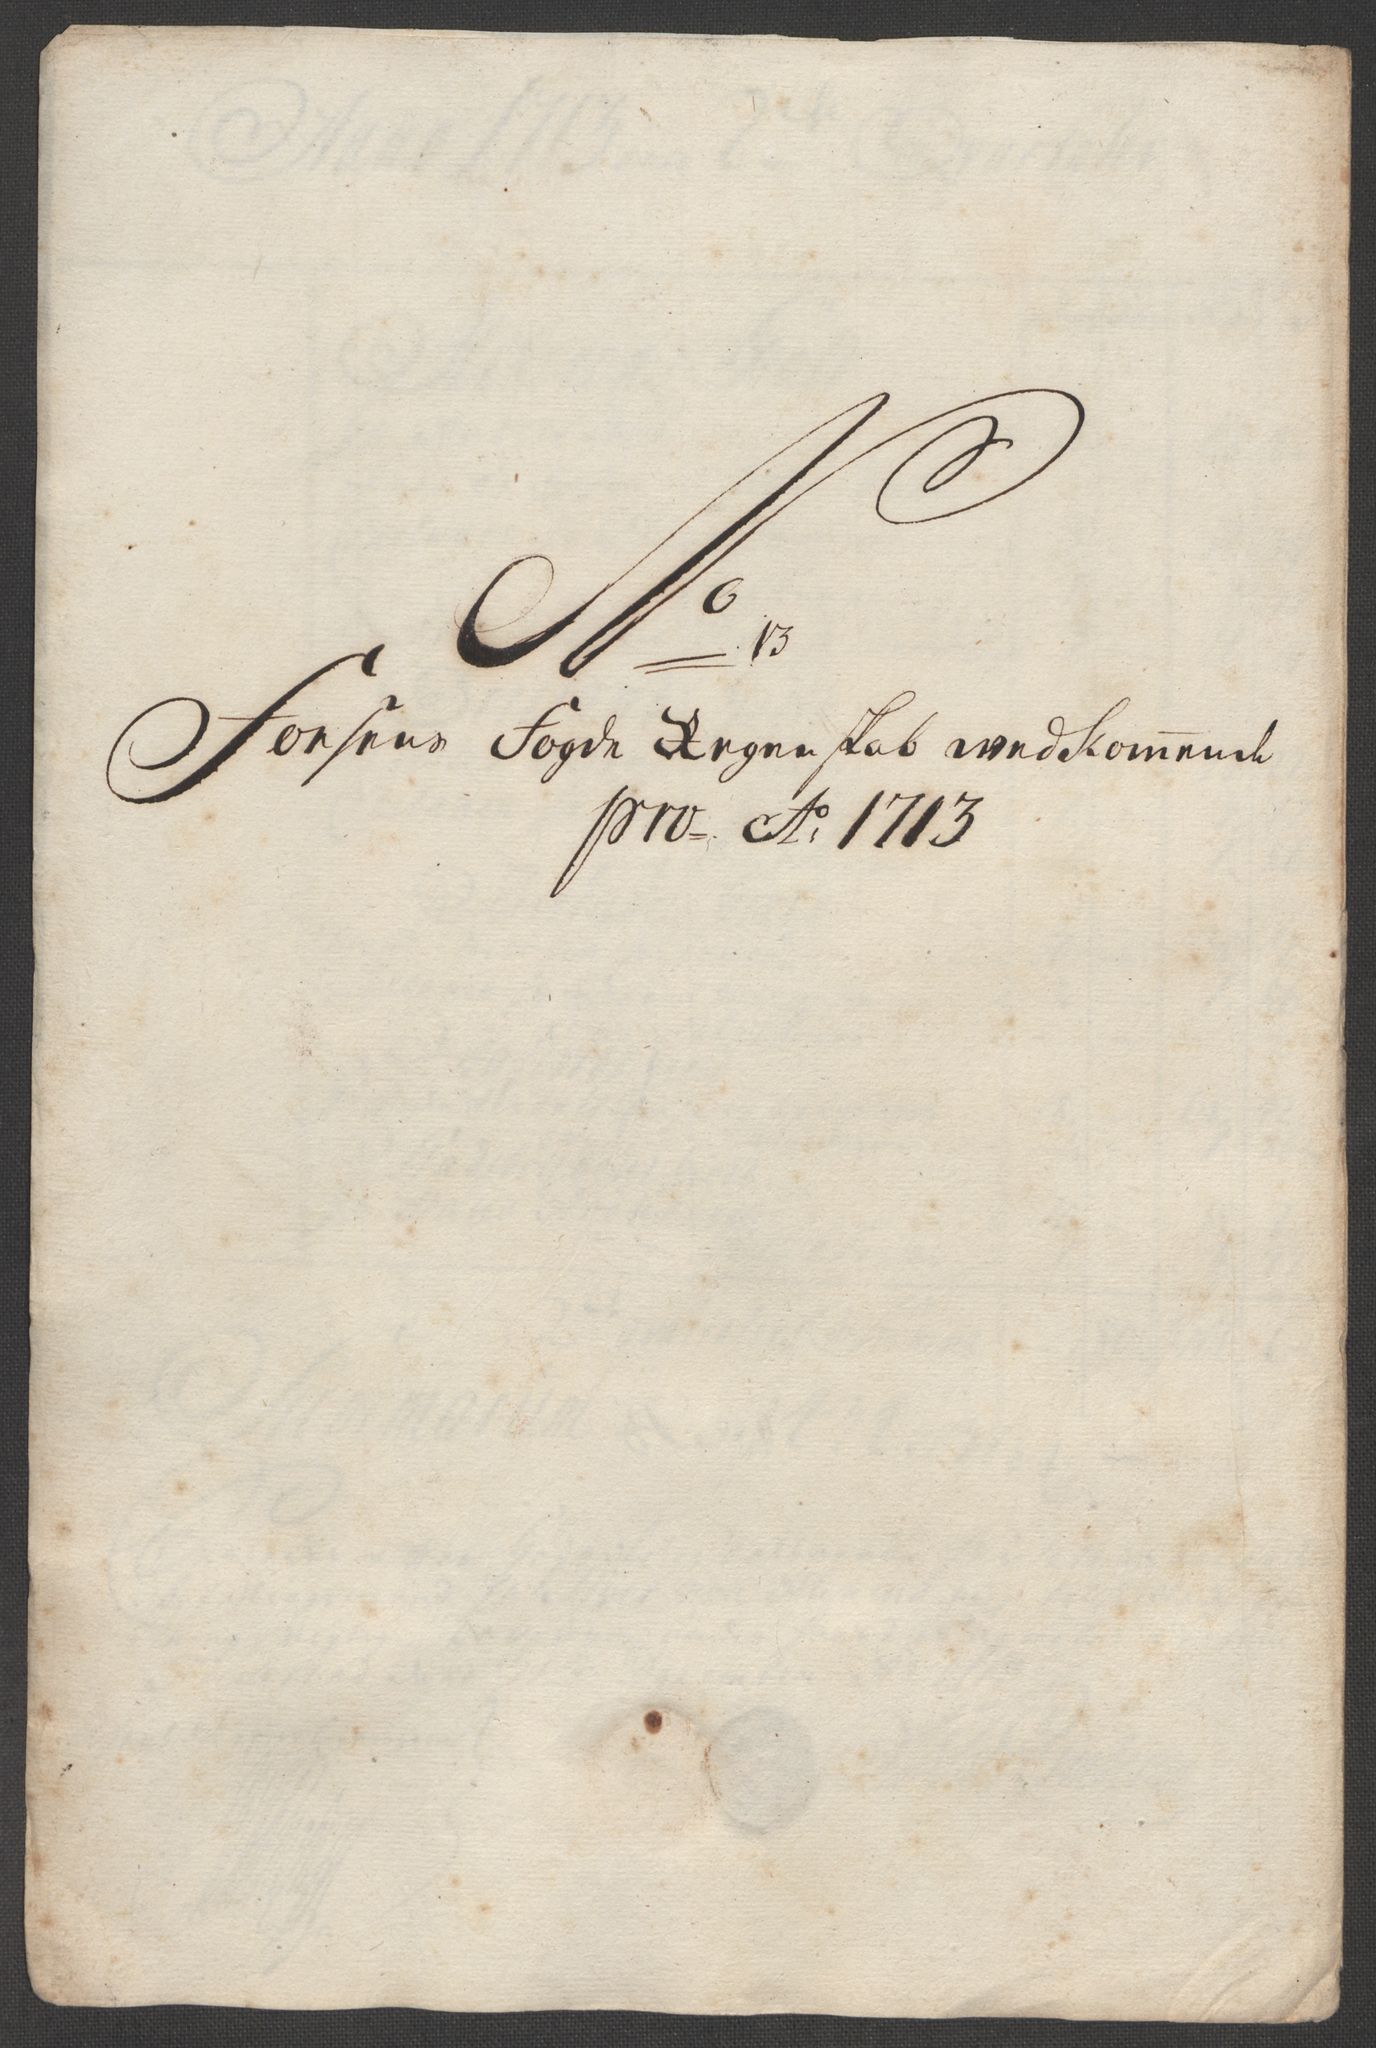 No
13
Foesens Fogde Regenskab wedkom̄ende
pro Ao: 1713